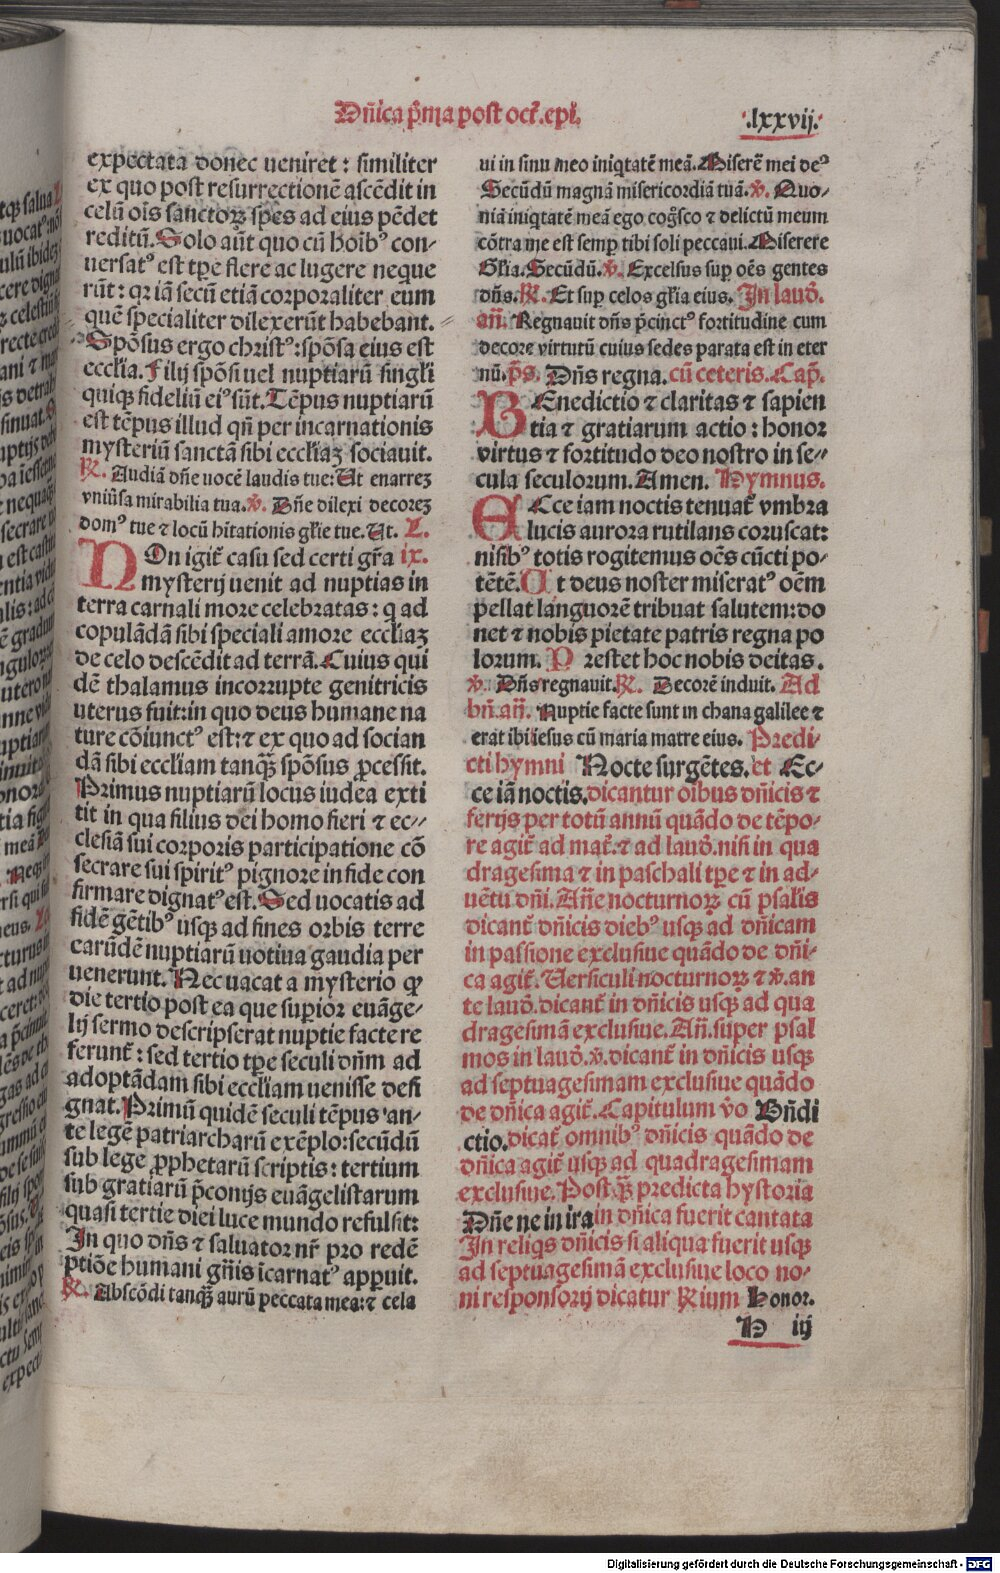 Dñica p̃ma post oct̃.epi.
.lxxvij.
expectata donec ueniret : similiter
ex quo post resurrectionē ascēdit in
celū oīs sanctoꝝ spes ad eius pēdet
reditū. Solo aūt quo cū hoībꝰ con-
uersatꝰ est tꝑe flere ac lugere neque
rūt : qꝛ iā secū etiā corporaliter eum
quē specialiter dilexerūt habebant.
Spōsus ergo christꝰ: spōsa eius est
eccl̃ia. Filij spōsi uel nuptiarū singl̃i
quiqꝫ fideliū eiꝰ sūt. Tēpus nuptiarū
est tēpus illud qñ per incarnationis
mysteriū sanctā sibi eccl̃iaꝫ sociauit.
℟. Audiā dñe uocē laudis tue: Ut enarreꝫ
vniũsa mirabilia tua. ℣. Dñe dilexi decoreꝫ
domꝰ tue ⁊ locū hītationis gl̃ie tue. Ut. L.
NOn igit̃ casu sed certi gr̃a ix.
mysterij uenit ad nuptias in
terra carnali more celebratas : q ad
copulādā sibi speciali amore eccl̃iaꝫ
de celo descēdit ad terrā. Cuius qui
dē thalamus incorrupte genitricis
uterus fuit: in quo deus humane na
ture cōiunctꝰ est: ⁊ ex quo ad socian
dā sibi eccl̃iam tanqꝫ spōsus ꝓcessit.
Primus nuptiarū locus iudea exti
tit in qua filius dei homo fieri ⁊ ec-
clesiā sui corporis participatione cō
secrare sui spiritꝰ pignore in fide con
firmare dignatꝰ est. Sed uocatis ad
fidē gētibꝰ usqꝫ ad fines orbis terre
earūdē nuptiarū uotiua gaudia per
uenerunt. Nec uacat a mysterio ꝙ
die tertio post ea que supior euāge-
lij sermo descripserat nuptie facte re
ferunt̃ : sed tertio tꝑe seculi dñm ad
adoptādam sibi eccl̃iam uenisse desi
gnat. Primū quidē seculi tēpus an-
te legē patriarcharū exēplo: secūdū
sub lege ꝓphetarū scriptis : tertium
sub gratiarū p̃conijs euāgelistarum
quasi tertie diei luce mundo refulsit:
In quo dñs ⁊ saluator nr̃ pro redē
ptiōe humani gñis īcarnatꝰ appuit.
℟. Abscōdi tanqꝫ aurū peccata mea: ⁊ cela
ui in sinu meo iniqtatē meā. Miserē mei deꝰ
Secūdū magnā misericordiā tuā. ℣. Quo-
niā iniqtatē meā ego cog̃sco ⁊ delictū meum
cōtra me est semp tibi soli peccaui. Miserere
Gl̃ia. Secūdū. ℣. Excelsus sup oēs gentes
dñs. ℟. Et sup celos gl̃ia eius. In laud̃.
añ. Regnauit dñs p̃cinctꝰ fortitudine cum
decore virtutū cuius sedes parata est in eter
nū. p̃s. Dñs regna. cū ceteris. Cap̃.
BEnedictio ⁊ claritas ⁊ sapien
tia ⁊ gratiarum actio : honor
virtus ⁊ fortitudo deo nostro in se-
cula seculorum. Amen. Hymnus.
ECce iam noctis tenuat̃ vmbra
lucis aurora rutilans coruscat:
nisibꝰ totis rogitemus oēs cūcti po-
tētē. Ut deus noster miseratꝰ oēm
pellat languorē tribuat salutem: do
net ⁊ nobis pietate patris regna po
lorum. Prestet hoc nobis deitas.
℣. Dñs regnauit. ℟. Decorē induit. Ad
bñ. añ. Nuptie facte sunt in chana galilee ⁊
erat ibi iesus cū maria matre eius. Predi-
cti hymni Nocte surgētes. et Ec-
ce iā noctis. dicantur oībus dñicis ⁊
ferijs per totū annū quādo de tēpo-
re agit̃ ad mat̃. ⁊ ad laud̃. nisi in qua
dragesima ⁊ in paschali tꝑe ⁊ in ad-
uētu dñi. Añe nocturnoꝝ cū psalis
dicant̃ dñicis diebꝰ usqꝫ ad dñicam
in passione exclusiue quādo de dñi-
ca agit̃. Uersiculi nocturnoꝝ ⁊ ℣. an
te laud̃. dicant̃ in dñicis usqꝫ ad qua
dragesimā exclusiue. Añ. super psal
mos in laud̃. ℣. dicant̃ in dñicis usqꝫ
ad septuagesimam exclusiue quādo
de dñica agit̃. Capitulum ṽo Bñdi
ctio. dicat̃ omnibꝰ dñicis quādo de
dñica agit̃ usqꝫ ad quadragesimam
exclusiue. Post qꝫ predicta hystoria
Dñe ne in ira in dñica fuerit cantata
In reliqs dñicis si aliqua fuerit usqꝫ
ad septuagesimā exclusiue loco no-
ni responsorij dicatur ℟ium Honor.
N iij
Digitalisierung gefördert durch die Deutsche Forschungsgemeinschaft - DFG